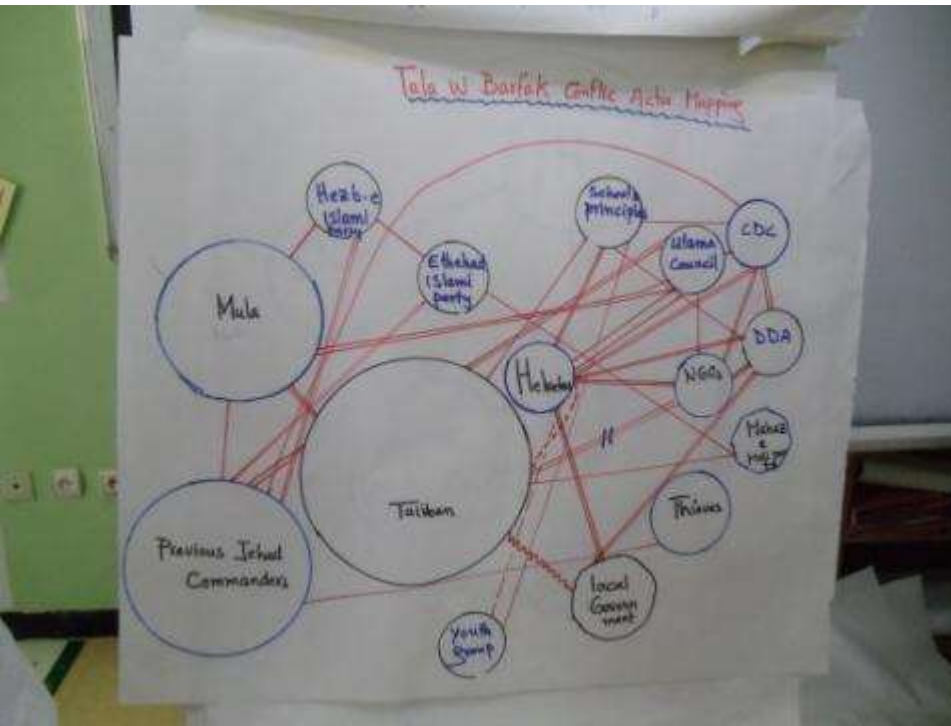 Tala w Barfak Conflic Actor Mapping
Hezb-e
Islami
party
School&
principles
CDC
Ulama
Council
Ethehad
Islami
party
Mula
DDA
Helvetas
NGOs
Mahaz
e
Taliban
Thieves
Previous Jehad
Commanders
local
Govern
ment
youth
group